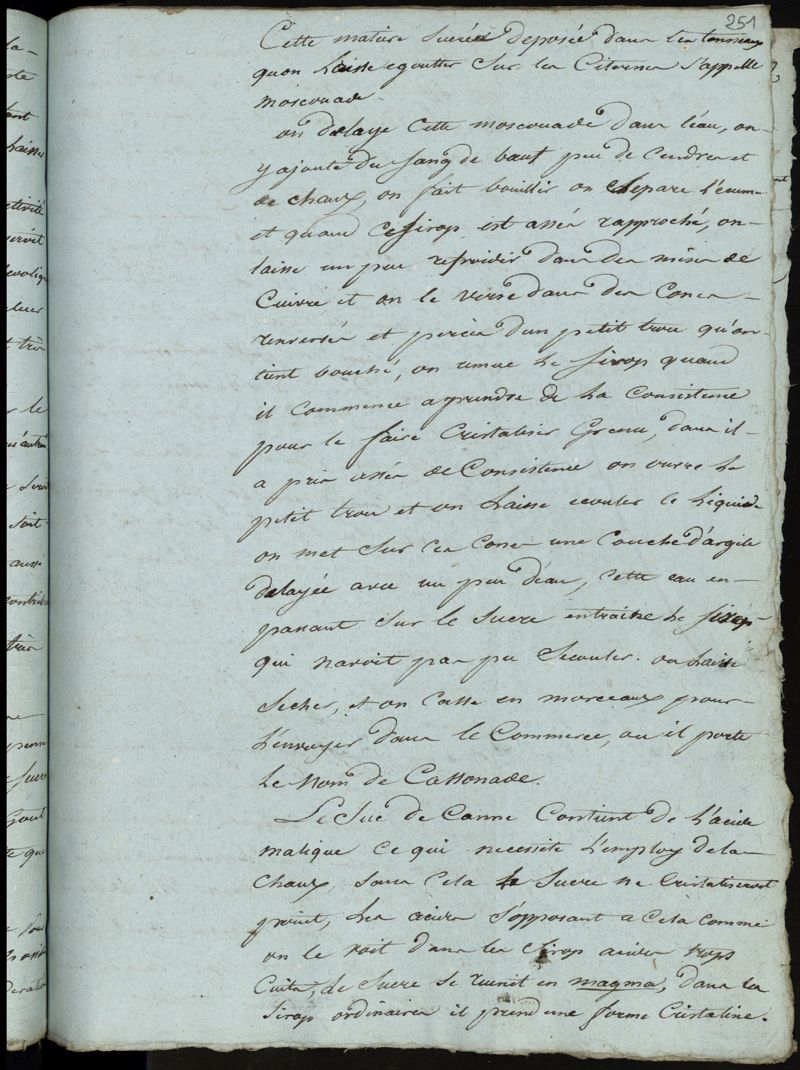 251
Cette matiere sucrée deposée dans les tonneaux
quon laisse egoutter sur les Citernes s'appelle
moscouade
on delaye cette moscouade dans l'eau, on
y ajoute du sang de bœuf peu de Cendres et
de chaux, on fait bouillir on separe l'ecume
et quand ce sirop est assés rapproché, on
laisse un peu refroidir dans des
Cuivre et on le verse dans des Cones
renversés et percés d'un petit trou qu'on
tient bouché, on remue le sirop quand
il Commence a prendre de la Consistence
pour le faire Cristaliser Grenu, dans il
a pris assés de Consistence on ouvre le
petit trou et on laisse ecouler le liquide
on met sur ces Cones une Couche d'argile
delayée avec un peu d'eau, cette eau en
passant sur le sucre entraine le sirop
qui n'avoit pas pu s'ecouler. on laisse
secher, et on casse en morceaux pour
l'envoyer dans le Commerce, ou il porte
le Nom de Cassonade.
Le Suc de Canne Contient de l'acide
malique ce qui necessite l'employ de la
chaux sans cela le sucre ne Cristaliseroit
point, les acides s'opposant a cela comme
on le voit dans les sirops acides trops
Cuits, de sucre se reunit en magma, dans les
sirops ordinaires il prend une forme Cristaline.